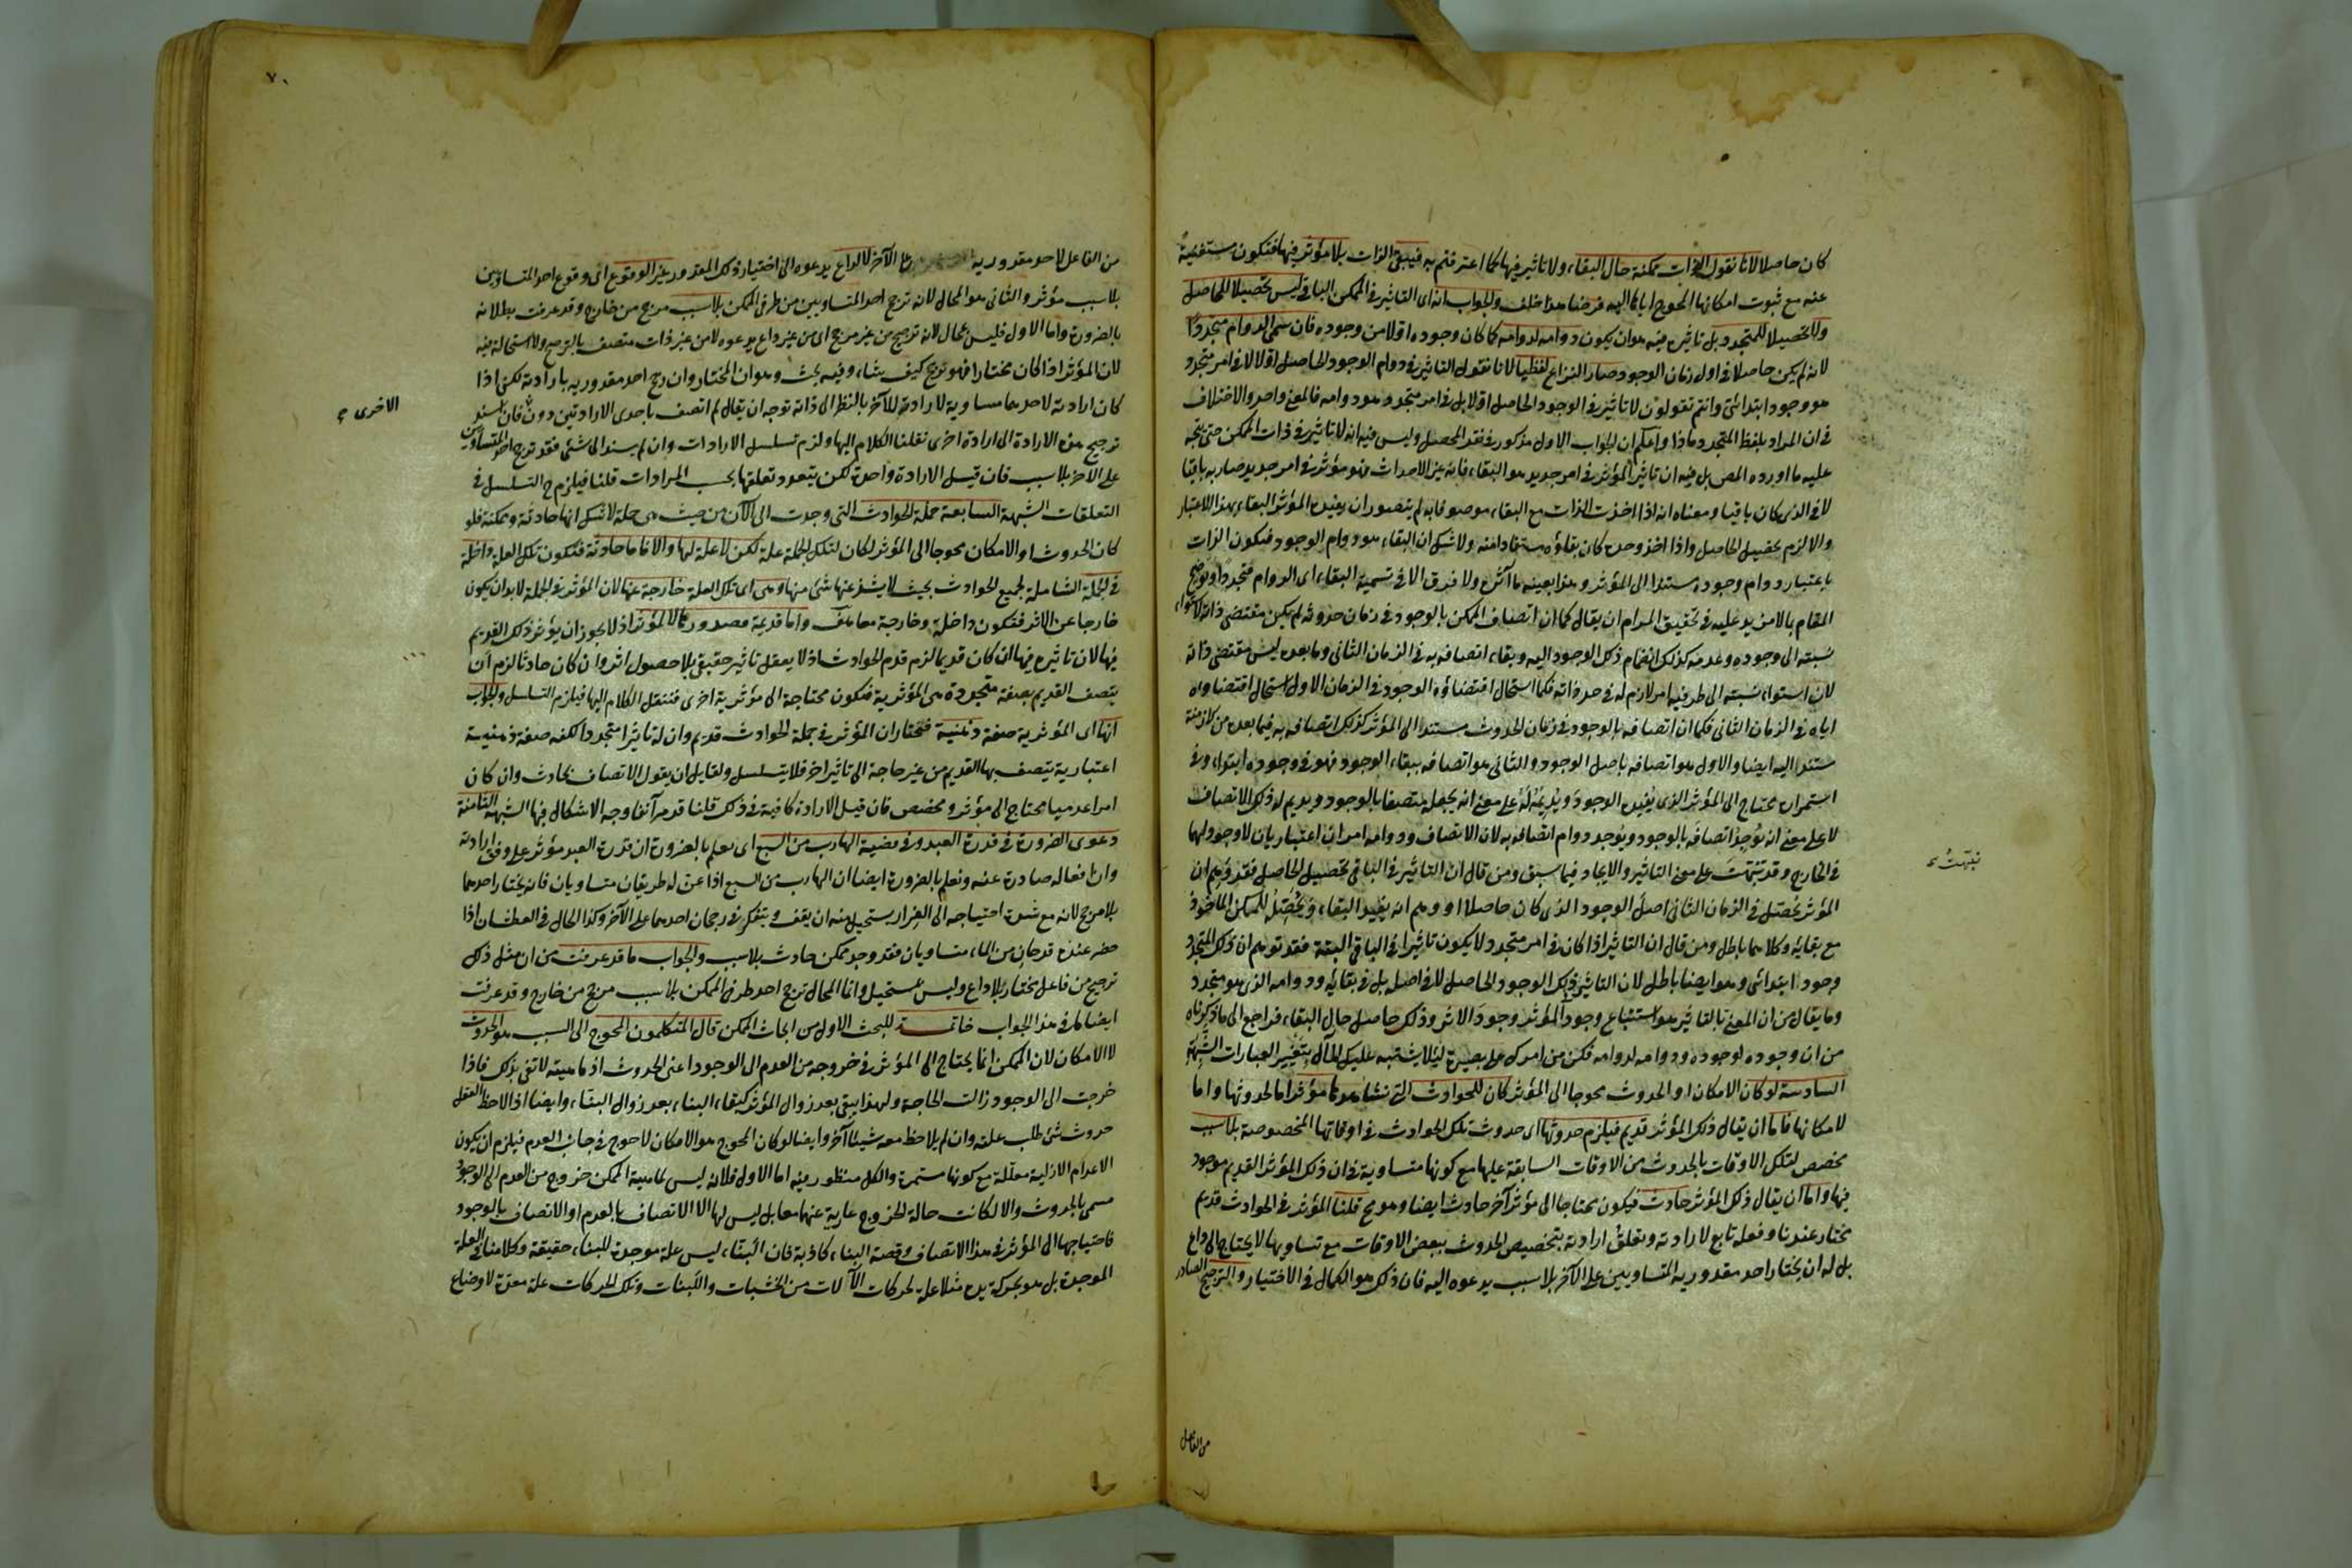 كان حاصلا لانا نقول الذات ممكنة حال البقاء ولا تاثير فيها كما اعترفتم به فيبقى الذات بلا مؤثر فيها فتكون مستغنية
عنه مع ثبوت امكانها المحوج اياها اليه فرضنا هذا خلف والجواب انه اى التاثير فى الممكن الباقى ليس تحصيلا للحاصل
ولا تحصيلا للمتجدد بل تاثيره فيه هو ان يكون دوامه لدوامه كما كان وجوده اولا من وجوده فان سمى الدوام متجددا
لانه لم يكن حاصلا فى اول زمان الوجود صار النزاع لفظيا لانا نقول التاثير فى دوام الوجود الحاصل اولا لا فى امر متجدد
هو وجود ابتدائى وانتم تقولون لا تاثير فى الوجود الحاصل اولا بل فى امر متجدد هو دوامه فالمعنى واحد والاختلاف
فى ان المراد بلفظ المتجدد ماذا واعلم ان الجواب الاول مذكور فى نقد المحصل وليس فيه انه لا تاثير فى ذات الممكن حتى يتجه
عليه ما اورده المص بل فيه ان تاثير المؤثر فى امر جديد هو البقاء فانه غير الاحداث فهو مؤثر فى امر جديد صار به باقيا
لا فى الذى كان باقيا ومعناه انه اذا اخذت الذات مع البقاء موصوفا به لم يتصور ان يفيده المؤثر البقاء بهذا الاعتبار
والا لزم تحصيل الحاصل واذا اخذ وحده كان بقاؤه مستفادا منه ولا شك ان البقاء هو دوام الوجود فتكون الذات
باعتبار دوام وجوده مستندا الى المؤثر وهذا بعينه ما آثره ولا فرق الا فى تسمية البقاء اى الدوام متجددا وتوضيح
المقام بما لا مزيد عليه فى تحقيق المرام ان يقال كما ان اتصاف الممكن بالوجود فى زمان حدوثه لم يكن مقتضى ذاته لاستواء
نسبته الى وجوده وعدمه كذلك انضمام ذلك الوجود اليه وبقاء اتصافه به فى الزمان الثانى وما بعده ليس مقتضى ذاته
لان استواء نسبته الى طرفيه امر لازم له فى حد ذاته فكما استحال اقتضاؤه الوجود فى الزمان الاول استحال اقتضاؤه
اياه فى الزمان الثانى فكما ان اتصافه بالوجود فى زمان الحدوث مستند الى المؤثر كذلك اتصافه به فيما بعده من الازمنة
مستند اليه ايضا والاول هو اتصافه باصل الوجود والثانى هو اتصافه ببقاء الوجود فهو فى وجوده ابتداء وفى
استمراره محتاج الى المؤثر الذى يفيده الوجود ويديمه له على معنى انه يجعله متصفا بالوجود ويديم له ذلك الاتصاف
لا على معنى انه يوجد اتصافه بالوجود ويوجد دوام اتصافه به لان الاتصاف ودوامه امران اعتباريان لا وجود لهما
فى الخارج وقد نبهت على معنى التاثير والايجاد فيما سبق ومن قال ان التاثير فى الباقى تحصيل الحاصل فقد توهم ان
المؤثر يحصل فى الزمان الثانى اصل الوجود الذى كان حاصلا او وهم انه يفيد البقاء ويحصل للممكن الماخوذ
مع بقائه وكلاهما باطل ومن قال ان التاثير اذا كان فى امر متجدد لا يكون تاثيرا فى الباقى البتة فقد توهم ان ذلك المتجدد
وجود ابتدائى وهو ايضا باطل لان التاثير فى ذلك الوجود الحاصل لا فى اصله بل فى بقائه ودوامه الذى هو متجدد
وما يقال من ان المعنى بالتاثير هو استتباع وجود المؤثر وجود الاثر وذلك حاصل حال البقاء فراجع الى ما ذكرناه
من ان وجوده لوجوده ودوامه لدوامه فكن من امرك على بصيرة لئلا يشتبه عليك الحال بتغيير العبارات الشبهة
السادسة لو كان الامكان او الحدوث محوجا الى المؤثر كان للحوادث التى نشاهدها مؤثر اما لحدوثها واما
لامكانها فاما ان يقال ذلك المؤثر قديم فيلزم حدوثها اى حدوث تلك الحوادث فى اوقاتها المخصوصة بلا سبب
مخصص لتلك الاوقات بالحدوث من الاوقات السابقة عليها مع كونها متساوية فى ان ذلك المؤثر القديم موجود
فيها واما ان يقال ذلك المؤثر حادث فيكون محتاجا الى مؤثر آخر حادث ايضا وهو مح قلنا المؤثر فى الحوادث قديم
مختار عندنا وفعله تابع لارادته وتعلق ارادته بتخصيص الحدوث ببعض الاوقات مع تساويها لا يحتاج الى داع
بل له ان يختار احد مقدوريه المتساويين على الآخر بلا سبب يدعوه اليه فان ذلك هو الكمال فى الاختيار والترجيح الصادر
نبهت
من الفاعل
٧٠
من الفاعل لاحد مقدوريه على الآخر لا لداع يدعوه الى اختيار ذلك المقدور غير الوقوع اى وقوع احد المتساويين
بلا سبب مؤثر والثانى هو المحال لانه ترجح احد المتساويين من طرفى الممكن بلا سبب مرجح من خارج وقد عرفت بطلانه
بالضرورة واما الاول فليس بمحال لانه ترجيح من غير مرجح اى من غير داع يدعوه لا من غير ذات متصف بالترجيح ولا استحالة فيه
لان المؤثر اذا كان مختارا فهو يرجح كيف يشاء وفيه بحث وهو ان المختار وان رجح احد مقدوريه بارادته لكن اذا
كان ارادته لاحدهما مساوية لارادته للآخر بالنظر الى ذاته توجه ان يقال لم اتصف باحدى الارادتين دون فان اسند
ترجيح هذه الارادة الى ارادة اخرى نقلنا الكلام اليها ولزم تسلسل الارادات وان لم يسند الى شئ فقد ترجح احد المتساويين
على الآخر بلا سبب فان قيل الارادة واحدة لكن يتعدد تعلقها بحسب المرادات قلنا فيلزم ح التسلسل فى
التعلقات الشبهة السابعة جملة الحوادث التى وجدت الى الآن من حيث هى جملة لا شك انها حادثة وممكنة فلو
كان الحدوث او الامكان محوجا الى المؤثر لكان لتلك الجملة علة لكن لا علة لها والا فاما حادثة فتكون تلك العلة داخلة
فى الجملة الشاملة لجميع الحوادث بحيث لا يشذ عنها شئ منها وهى اى تلك العلة خارجة عنها لان المؤثر فى الجملة لا بد ان يكون
خارجا عن الاثر فتكون داخلة وخارجة معا هف واما قديمة اذ لا يجوز ان يؤثر ذلك القديم
فيها لان تاثيره فيها ان كان قديما لزم قدم الحوادث اذ لا يعقل تاثير حقيقى بلا حصول اثر وان كان حادثا لزم ان
يتصف القديم بصفة متجددة هى المؤثرية فتكون محتاجة الى مؤثرية اخرى فننقل الكلام اليها فيلزم التسلسل والجواب
انها اى المؤثرية صفة ذهنية فنختار ان المؤثر فى جملة الحوادث قديم وان له تاثيرا متجددا لكنه صفة ذهنية
اعتبارية يتصف بها القديم من غير حاجة الى تاثير آخر فلا يتسلسل ولقايل ان يقول الاتصاف بحادث وان كان
امرا عدميا يحتاج الى مؤثر ومخصص فان قيل الارادة كافية فى ذلك قلنا قد مر آنفا وجه الاشكال فيها الشبهة الثامنة
دعوى الضرورة فى قدرة العبد وفى قضية الهارب من السبع اى نعلم بالضرورة ان قدرة العبد مؤثرة على وفق ارادته
وان افعاله صادرة عنه ونعلم بالضرورة ايضا ان الهارب من السبع اذا عن له طريقان متساويان فانه يختار احدهما
بلا مرجح لانه مع شدة احتياجه الى الفرار يستحيل منه ان يقف ويتفكر فى رجحان احدهما على الآخر وكذا الحال فى العطشان اذا
حضر عنده قدحان من الماء متساويان فقد وجد ممكن حادث بلا سبب والجواب ما قد عرفت من ان مثل ذلك
ترجيح من فاعل مختار بلا داع وليس بمستحيل وانما المحال ترجح احد طرفى الممكن بلا سبب مرجح من خارج وقد عرفت
ايضا ما فى هذا الجواب خاتمة للبحث الاول من ابحاث الممكن قال المتكلمون المحوج الى السبب هو الحدوث
لا الامكان لان الممكن انما يحتاج الى المؤثر فى خروجه من العدم الى الوجود اعنى الحدوث اذ ماهيته لا تفى بذلك فاذا
خرجت الى الوجود زالت الحاجة ولهذا يبقى بعد زوال المؤثر كبقاء البناء بعد زوال البناء وايضا اذا لاحظ العقل
حدوث شئ طلب علته وان لم يلاحظ معه شيئا آخر وايضا لو كان المحوج هو الامكان لاحوج فى جانب العدم فيلزم ان يكون
الاعدام الازلية معللة مع كونها مستمرة والكل منظور فيه اما الاول فلانه ليس لماهية الممكن خروج من العدم الى الوجود
مسمى بالحدوث والا لكانت حالة الخروج عارية عنهما معا بل ليس لها الا الاتصاف بالعدم او الاتصاف بالوجود
فاحتياجها الى المؤثر فى هذا الاتصاف وقصة البناء كاذبة فان البناء ليس علة موجدة للبناء حقيقة وكلامنا فى العلة
الموجدة بل هو بحركة يده مثلا علة لحركات الآلات من الخشبات واللبنات وتلك الحركات علة معدة لاوضاع
الاخرى